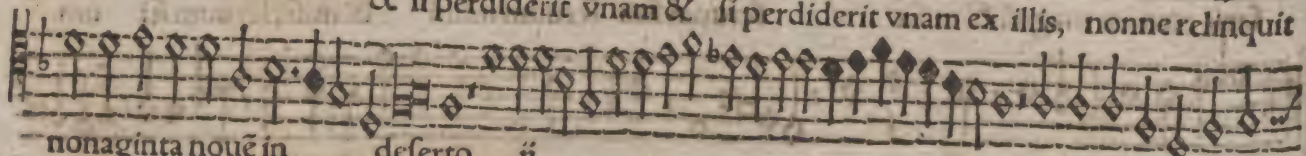 & si perdiderit vnam & si perdiderit vnam ex illis, nonne relinquit
nonaginta nouẽ in deserto ij